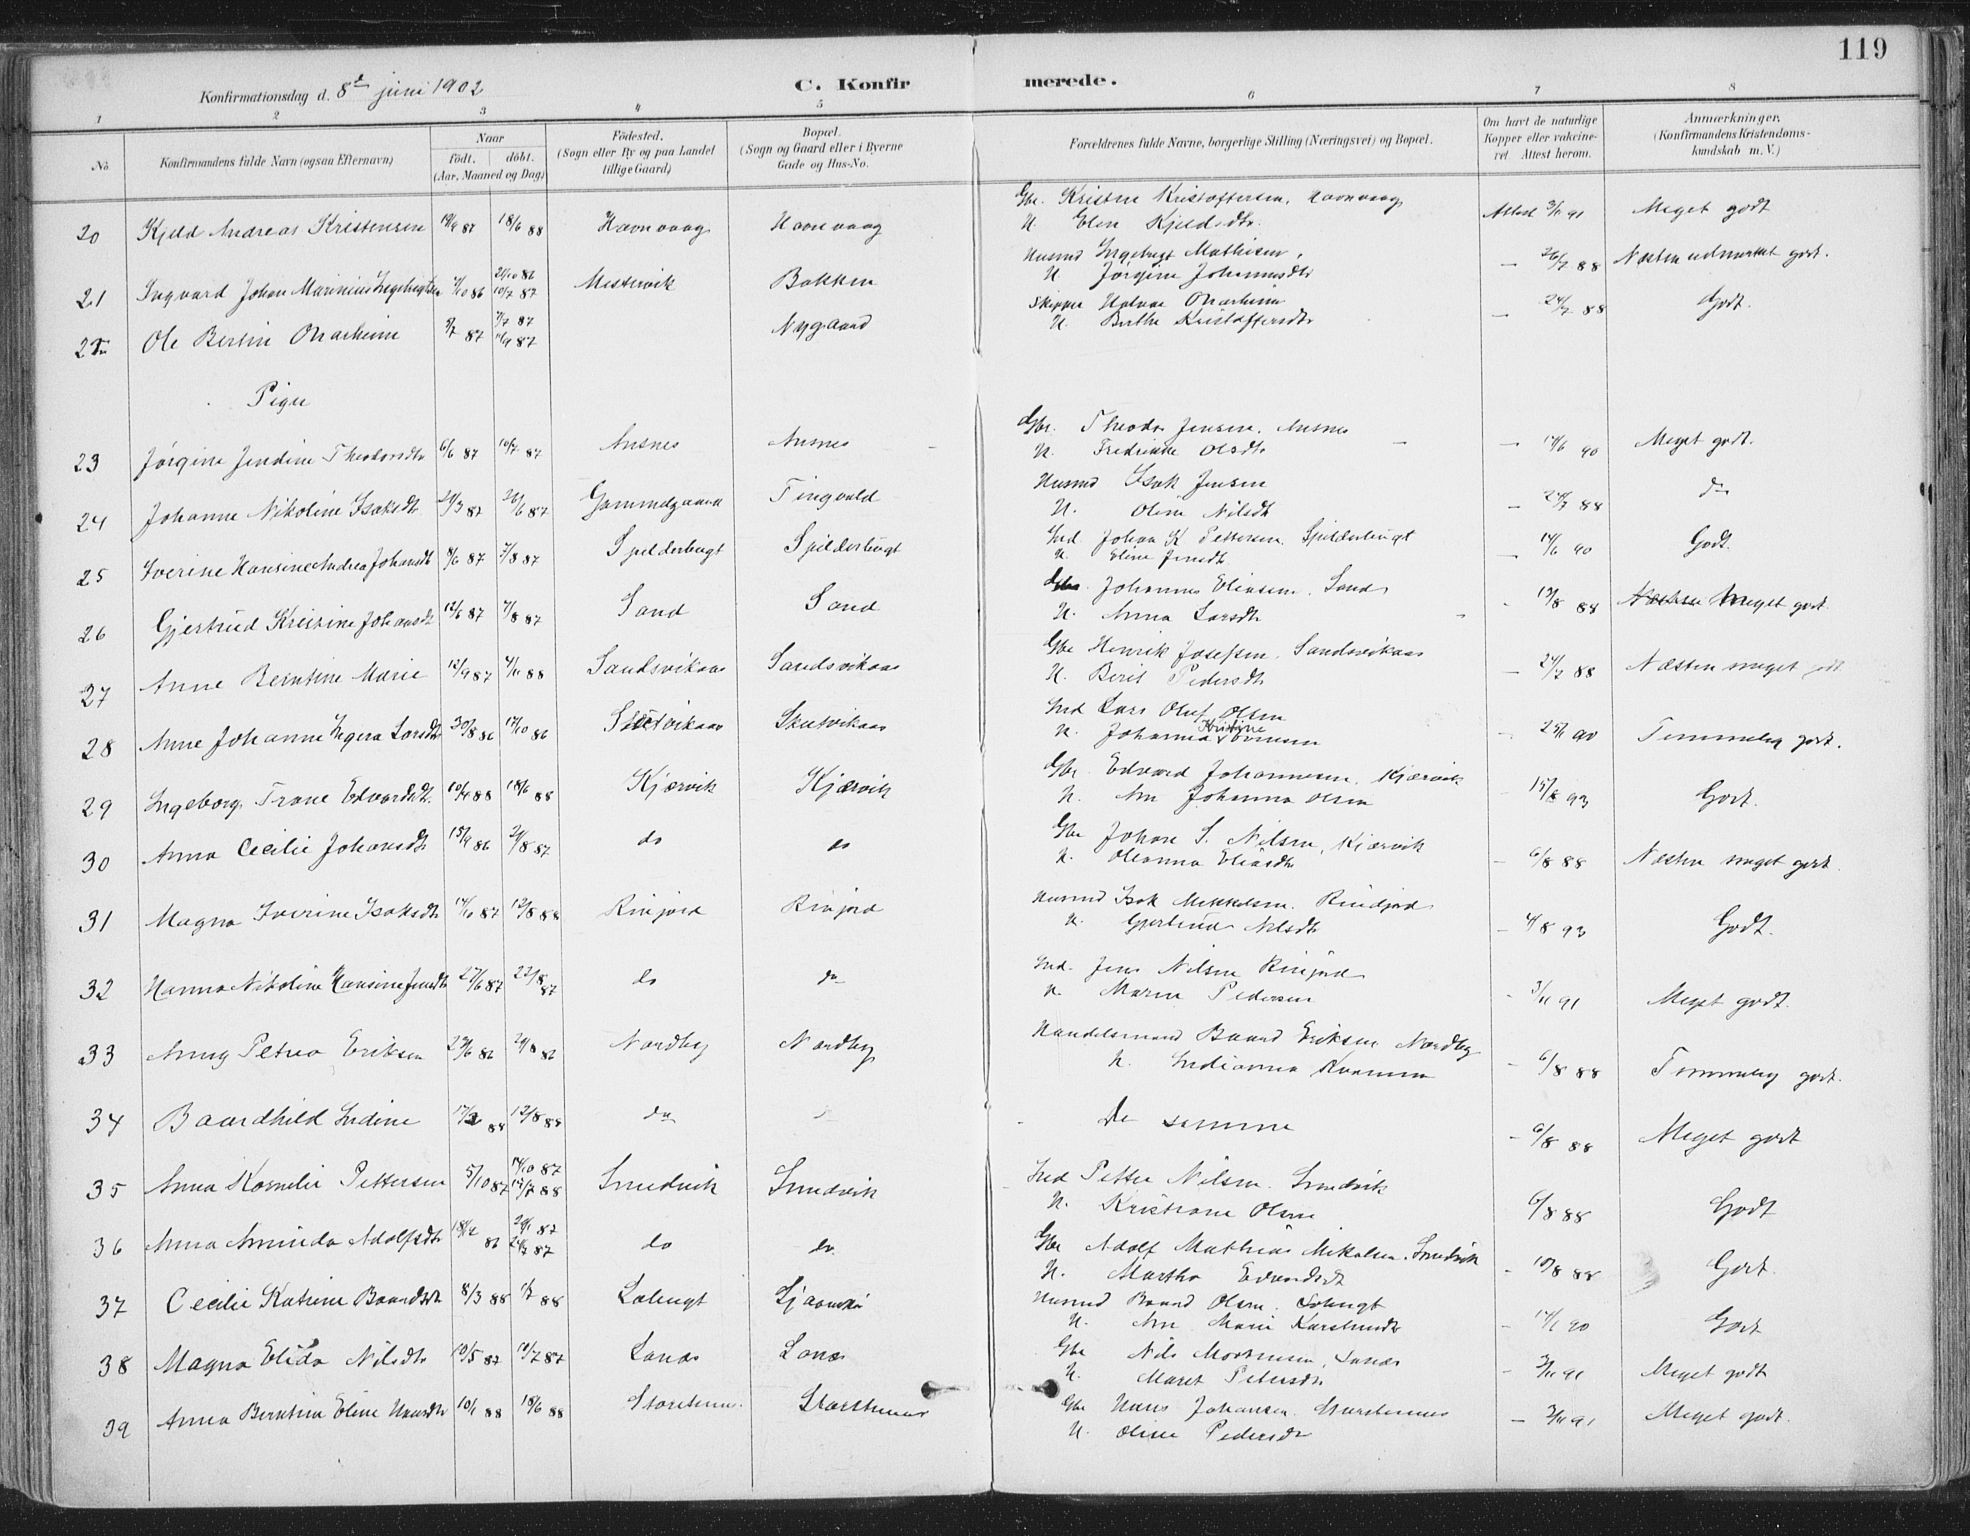 119
Konfirmationsdag d. 8de juni 1902
C. Konfirmerede.
1 2 3 4 5 6 7 8
No
Konfirmandens fulde Navn (ogsaa Efternavn)
Naar
født. døbt.
(Aar, Maaned og Dag)
Födested.
(Sogn eller By og paa Landet
tillige Gaard)
Bopæl.
(Sogn og Gaard eller i Byerne
Gade og Hus-No.
Forældrenes fulde Navne, borgerlige Stilling (Næringsvei) og Bopæl.
Om havt de naturlige
Kopper eller vakcine-
ret. Attest herom.
Anmærkninger.
(Konfirmandens Kristendoms-
kundskab m. V.)
20 Kjeld Andreas Kristensen 19/9 87 18/6 88 Havnvaag Havnvaag Gbr. Kristen Kristoffersen, Havnvaag Attest 3/11 91 Meget godt
H. Elen Kjeldsdtr.
21 Ingvard Johan Marinius Ingebrigtsen /10 86 21/10 86 10/7 87 Mestervik Bakken Husmd Ingebrigt Mathisen, – 26/7 88 Næsten udmærket godt.
H. Jørgine Johannesdtr
22 Ole Bertin Onarheim 3/7 87 7/7 87 11/9 87 Nygaard Skipper Halvar Onarheim – 24/7 88 Godt.
H. Berthe Kristoffersdtr
Piger
23 Jørgine Jendine Theodorsdtr 6/6 87 10/7 87 Ansnes Ansnes Gbr. Theodor Jensen, Ansnes – 14/6 90 Meget godt.
H. Fredrikke Olsdtr
24 Johanne Nikoline Isaksdtr 21/3 87 26/6 87 Gammelgaard Tingvold Husmd Isak Jensen – 24/7 88 do
H. Oline Nilsdtr
25 Iverine Hansine Andrea Johansdtr 8/6 87 7/8 87 Spilderbugt Spilderbugt Ind Johan K Pettersen. Spilderbugt – 14/6 90 Godt.
H. Eline Jensdtr
26 Gjertrud Kreisine Johansdtr 12/6 87 7/8 87 Sand Sand Gbr. Johannes Eliasen. Sand 13/8 88 Næsten Meget godt.
H. Anna Larsdtr
27 Anne Berntine Marie 12/9 87 4/11 88 Sandsvikaas Sandsvikaas Gbr Henrik Josefsen. Sandsvikaas – 24/7 88 Næsten meget godt
H. Berit Pedersdtr
28 Anne Johanne Hegera Larsdtr 30/8 86 17/10 86 Skutvikaas Skutvikaas Ind Lars Oluf Olsen – 25/11 90 Temmelig godt.
H. Johanna Kristine
29 Ingeborg Trane Edvardsdtr. 10/4 88 18/6 88 Kjærvik Kjærvik Gbr. Edvard Johannesen. Kjærvik 15/8 93 Godt.
H. Ane Johanna Olsen
30 Anna Cecilie Johansdtr 15/9 86 21/8 87 do do Gbr Johan S. Nilsen, Kjærvik – 6/8 88 Næsten meget godt.
H. Oleanna Eliasdtr
31 Magna Iverine Isaksdtr 14/10 87 12/8 88 Rinjord Rinjord Husmd Isak Mikkelsen. Rindjord – 4/8 93 Godt.
H. Gjertrud Nilsdtr
32 Hanna Nikoline Hansine Jensdtr 27/6 87 22/8 87 do do Ind. Jens Nilsen Rinjord – 3/11 91 Meget godt.
H. Maren Pedersen
33 Anny Petrea Eriksen 23/6 86 24/8 86 Nordby Nordby Handelsmand Baard Eriksen Nordby – 6/8 88 Temmelig godt.
H. Indianna
34 Baardhild Indine 17/2 88 12/8 88 do De samme – 6/8 88 Meget godt
35 Anna Kornelie Pettersen 5/10 87 14/10 87 15/7 88 Smedvik Smedvik Ind Petter Nilsen. Smedvik 6/8 88 Godt
H. Kristiane Olsen
36 Anna Aminda Adolfsdtr 18/12 86 20/1 87 24/7 87 do do Gbr Adolf Mathias Mikalsen. Smedvik – 10/8 88 Godt.
H. Martha Edvardsdtr
37 Cecilie Katrine Baardsdtr 8/3 88 1/7 88 Lobugt Husmd Baard Olsen. Lobugt – 14/6 90 Godt
H. Ane Marie
38 Magna Elida Nilsdtr 10/5 87 10/7 87 Lanes Lanes Gbr Nils Mortensen, Lanes – 3/11 91 Meget godt
H. Maret Petersdtr
39 Anna Berntine Eline Hansdtr 10/1 88 18/6 88 Storstennes Storstennes Gbr Hans Johansen. Storstennes – 3/11 91 Meget godt.
H. Oline Pedersdtr